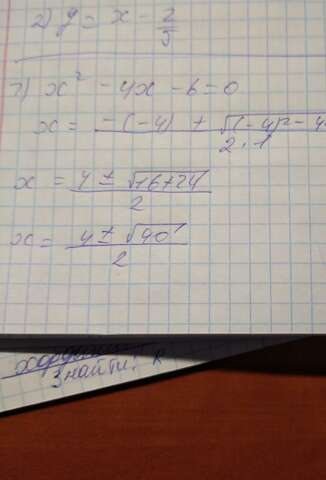 2) y = x - 2/5
7) x² - 4x - 6 = 0
x = -(-4) + √(-4)² - 4 / 2·1
x = 4 ± √16+24 / 2
x = 4 ± √40 / 2
Знайти: R